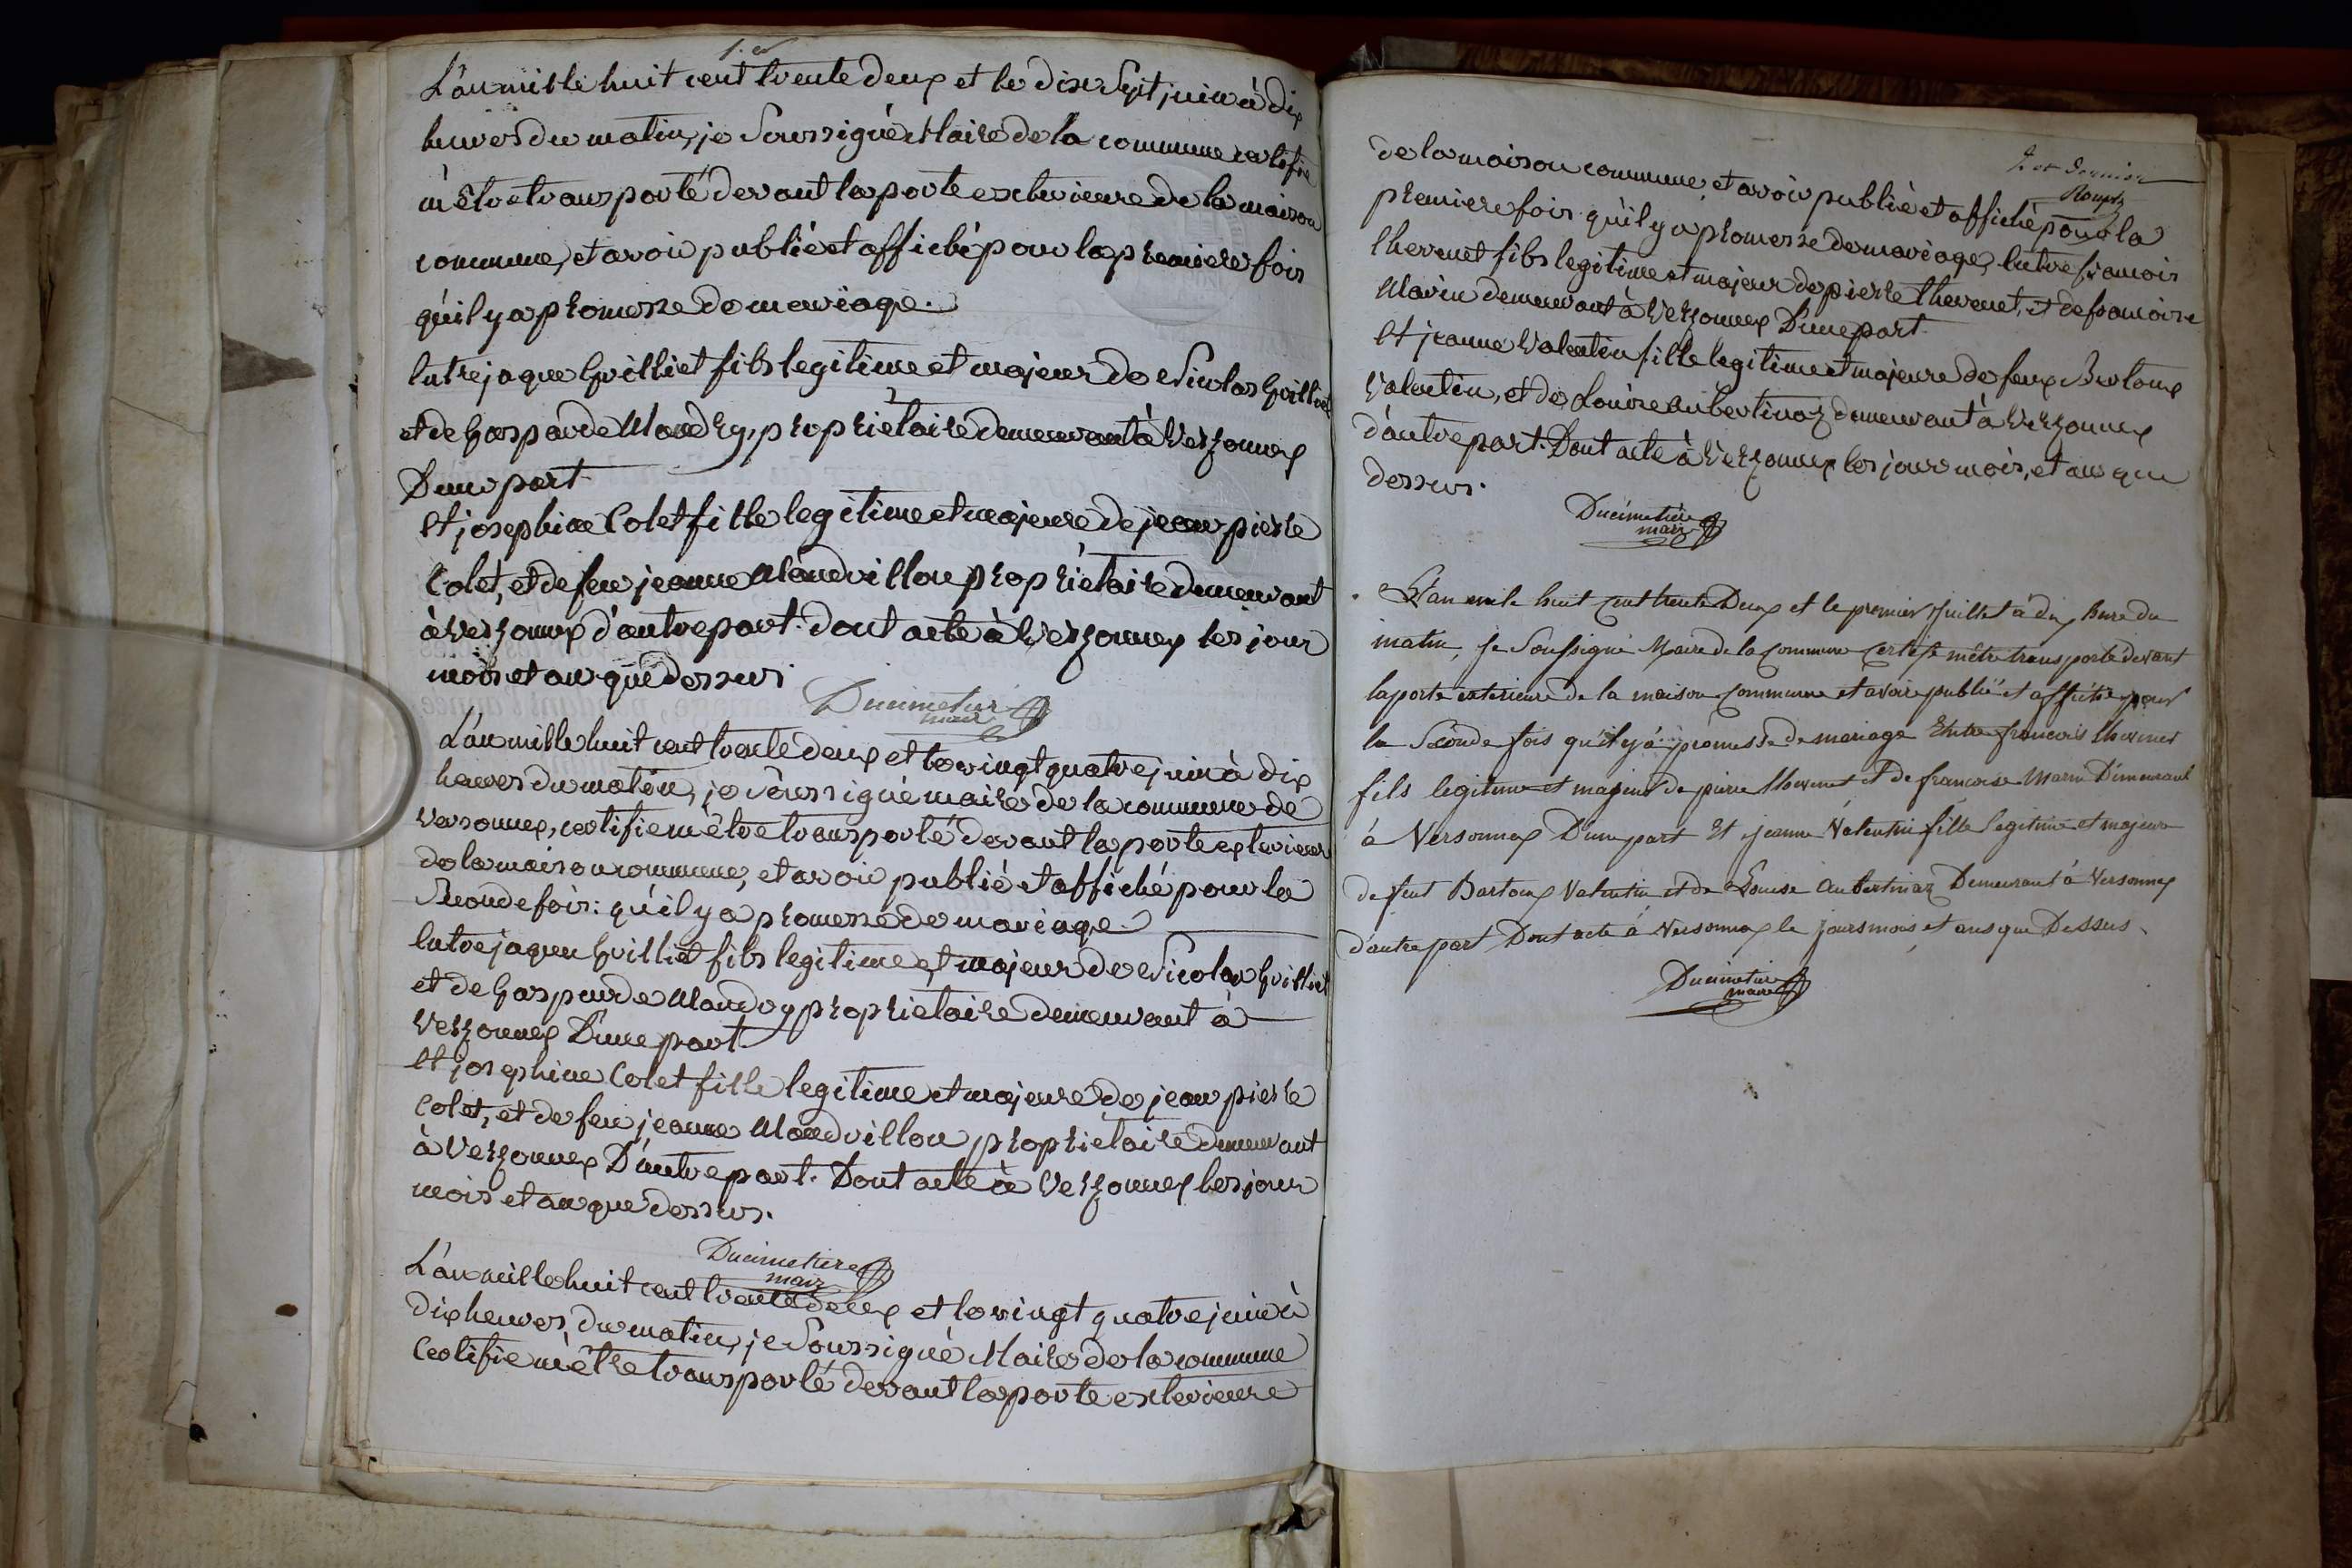 1. er
L'an mille huit cent trente deux et le dix Sept juin à dix
heures du matin, je Soussigné Maire de la commune certifie
m'être transporté devant la porte exterieure de la maison
commune, et avoir publié et affiché pour la premiere fois
qu'il y a promesse de mariage.
Entre jaque Guilliet fils legitime et majeur de Nicolas Guilliet
et de Gasparde Maudry, propriètaire demeurant à Versonnex
D'une part
Et josephine Colet fille legitime et majeure de jean pierre
Colet, et de feu jeanne Mandrillon propriètaire demeurant
à Versonnex d'autre part. dont acte à Versonnex les jour
mois et an que dessus
Ducimetiere
maire
L'an mille huit cent trente deux et le vingt quatre juin à dix
heures du matin, je Soussigné maire de la commune de
Versonnex, certifie m'être transporté devant la porte exterieure
de la maison commune, et avoir publié et affiché pour la
Seconde fois: qu'il y a promesse de mariage
Entre jaques Guilliet fils legitime et majeur de Nicolas Guilliet
et de Gasparde Maudry proprietaire demeurant à
Versonnex D'une part
Et josephine Colet fille legitime et majeure de jean pierre
Colet, et de feu jeanne Mandrillon proprietaire demeurant
à Versonnex D'autre part. Dont acte à Versonnex les jour
mois et an que dessus.
Ducimetiere
maire
L'an mille huit cent trente deux et le vingt quatre juin à
dix heures du matin, je Soussigné Maire de la commune
Certifie m'être transporté devant la porte exterieure
2. et dernier
de la maison commune, et avoir publié et affiché pour la
premiere fois qu'il y a promesse de mariage, Entre francois
thevenet fils legitime et majeur de pierre thevenet, et de francoise
Marin demeurant à Versonnex D'une part
Et jeanne Valentin fille legitime et majeure de feux Bartoux
Valentin, et de Louise aubertinaz demeurant à Versonnex
d'autre part. Dont acte à Versonnex les jour mois, et an que
dessus.
Ducimetiere
maire
L'an mile huit cent trente Deux et le premier Juillet à dix heure du
matin, je Soussigné Maire de la Commune Certifie mêtre transporté devant
la porte exterieure de la maison Commune et avoir publié et affiché pour
la Seconde fois qu'il y à promesse de mariage Entre francois thevenet
fils legitime et majeur de pierre thevenet et de francoise Marin Demeurant
à Versonnex D'une part Et jeanne Valentin fille legitime et majeure
de feut Bartoux Valentin et de Louise Aubertinaz Demeurant à Versonnex
d'autre part Dont acte à Versonnex le jours mois et ans que Dessus.
Ducimetiere
maire